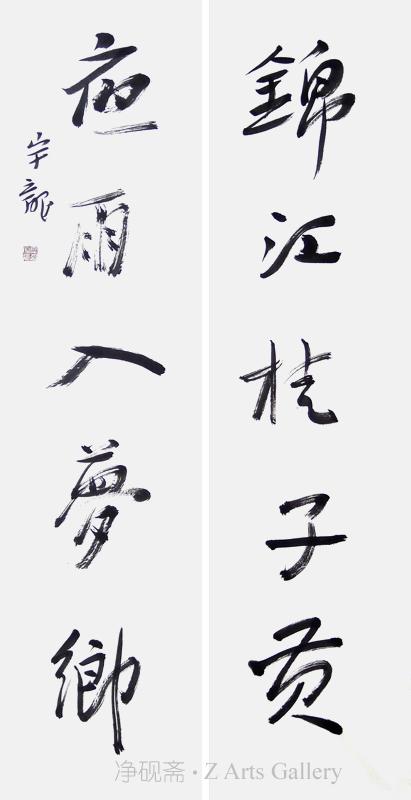 錦江桂子黄
夜雨入夢鄉
宇龍
净砚斋 · Z Arts Gallery